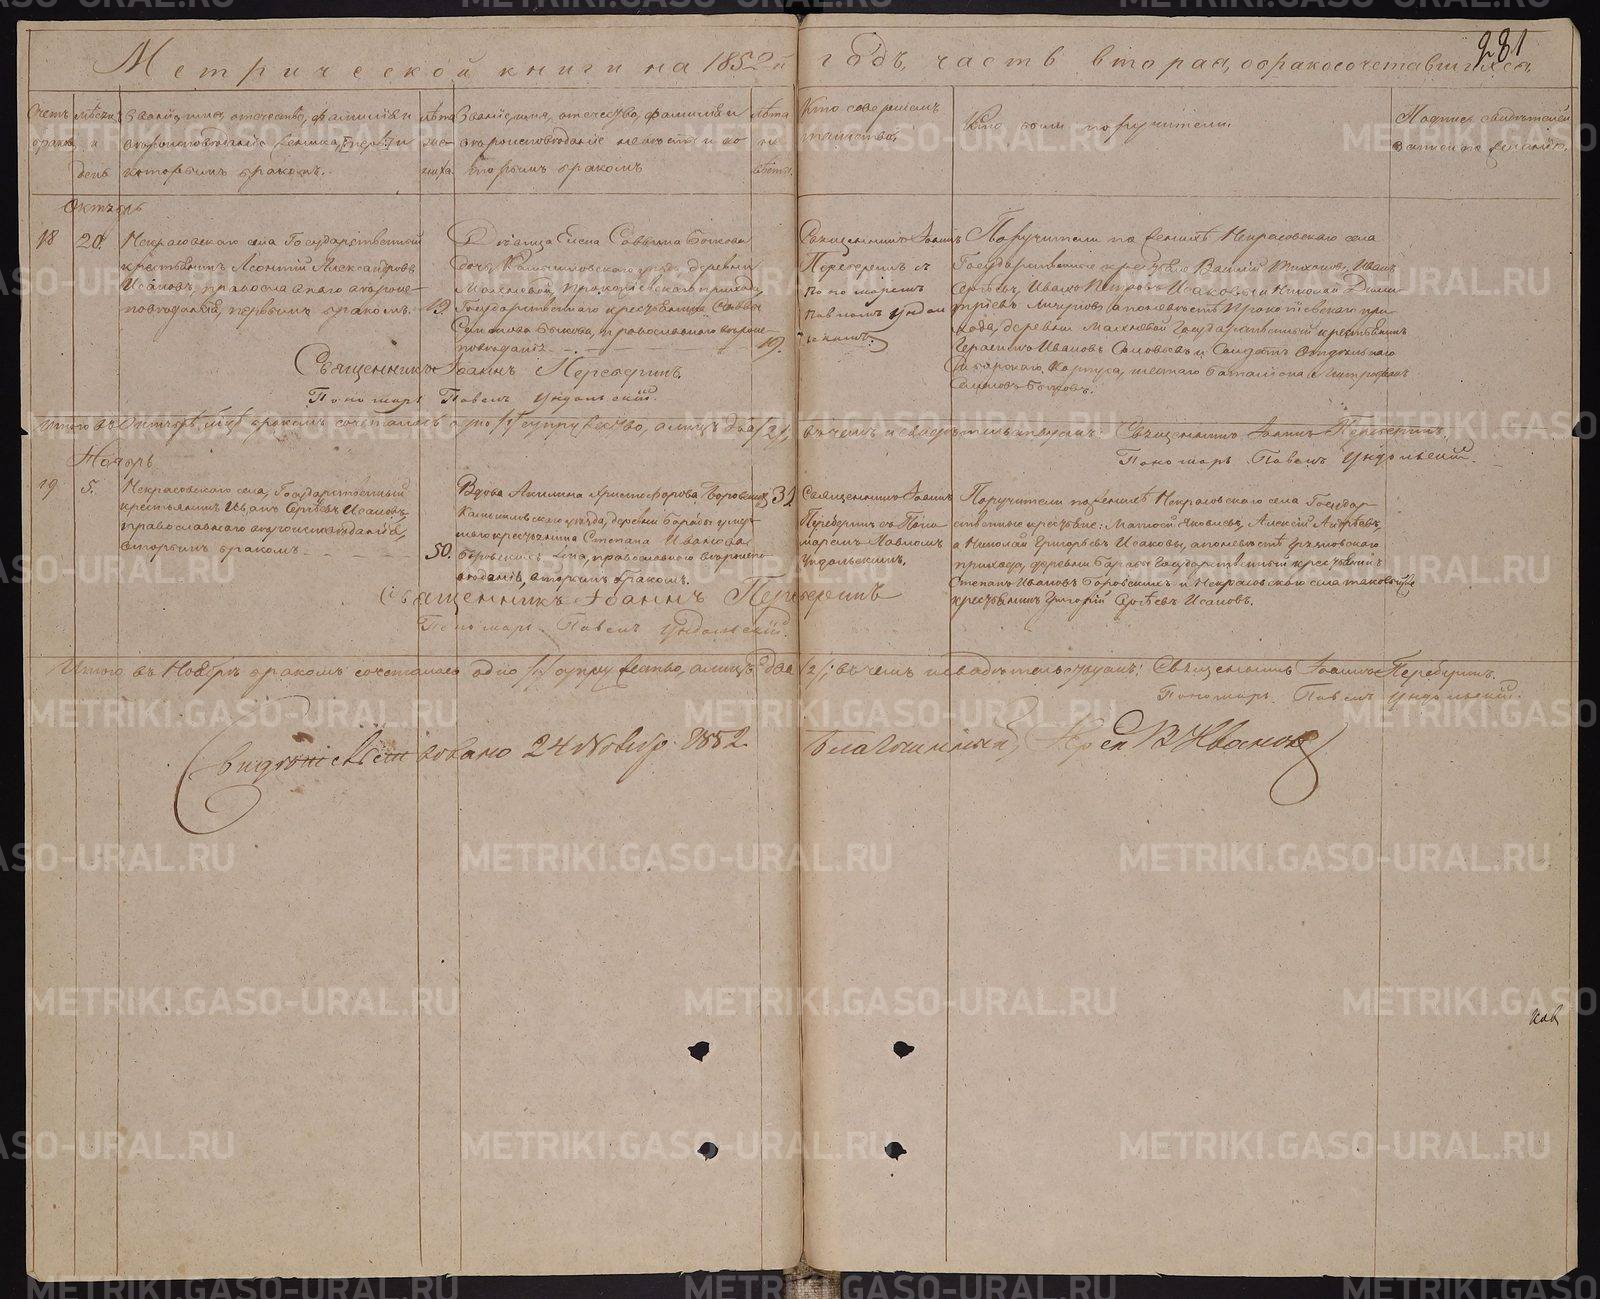 281
Метрической книги на 1852й годъ, часть вторая, о бракосочетавшихся.
Счетъ браковъ
Мѣсяцъ и день
Званіе, имя, отечество, фамилія и вѣроисповѣданіе жениха, и которымъ бракомъ.
лѣта жениха
Званіе, имя, отечество, фамилія и вѣроисповѣданіе невѣсты и которымъ бракомъ
лѣта невѣсты.
Кто совершалъ таинство.
Кто были поручители
Подпись свидѣтелей записи по желанію.
Октябрь
18
20.
Некрасовскаго села Государственный
крестьянинъ Леонтій Александровъ
Исаковъ, православнаго вѣроис-
повѣданія, первымъ бракомъ.
19.
Дѣвица Елена Саввина
дочь Камышловскаго уѣзда деревни
прихода,
Государственнаго крестьянина Саввы
православнаго вѣроис-
повѣданія
19.
Священникъ Іоаннъ
Переберинъ съ
Пономаремъ
Павломъ Ундоль-
скимъ.
Поручители по женихѣ Некрасовскаго села
Государственные крестьяне Василій Иванъ
Сергѣевъ, Иванъ Петровъ Исаковы и Николай Дими-
тріевъ а по невѣстѣ Прокопіевскаго при-
хода, деревни Государственный крестьянинъ
Ивановъ Соловьевъ и Солдатъ Отдѣльнаго
Сибирскаго Корпуса, баталіона
Священникъ Іоаннъ Переберинъ.
Пономарь Павелъ Ундольскій.
Итого въ Октябрѣ м-цѣ бракомъ сочеталось одно /1/ супружество, а лицъ два /2/, въ чемъ и свидѣтельствуемъ: Священникъ Іоаннъ Переберинъ.
Пономарь Павелъ Ундольскій.
Ноябрь
19
5.
Некрасовскаго села, Государственный
крестьянинъ Иванъ Сергѣевъ Исаковъ
православнаго вѣроисповѣданія,
вторымъ бракомъ.
50.
Вдова Акилина Христофорова Боровскихъ
Камышловскаго уѣзда, деревни Барабы умер-
шаго крестьянина Степана Иванова
Боровскихъ жена, православнаго вѣроиспо-
вѣданія, вторымъ бракомъ.
31
Священникъ Іоаннъ
Переберинъ съ Поно-
маремъ Павломъ
Ундольскимъ.
Поручители по женихѣ Некрасовскаго села Государ-
ственные крестьяне: Матвей Яковлевъ, Алексій Андреевъ,
а Николай Григорьевъ Исаковы, а по невѣстѣ
прихода, деревни Барабы Государственный крестьянинъ
Степанъ Ивановъ Боровскихъ и Некрасовскаго села таковый же
крестьянинъ Григорій Сергѣевъ Исаковъ.
Священникъ Іоаннъ Переберинъ
Пономарь Павелъ Ундольскій.
Итого въ Ноябрѣ бракомъ сочеталось одно /1/ супружество, а лицъ два /2/; въ чемъ и свидѣтельствуемъ: Священникъ Іоаннъ Переберинъ.
Пономарь Павелъ Ундольскій.
Свидѣтельствовано 24 Ноября 1852. Благочинный, Иерей В Ивановъ
METRIKI.GASO-URAL.RU